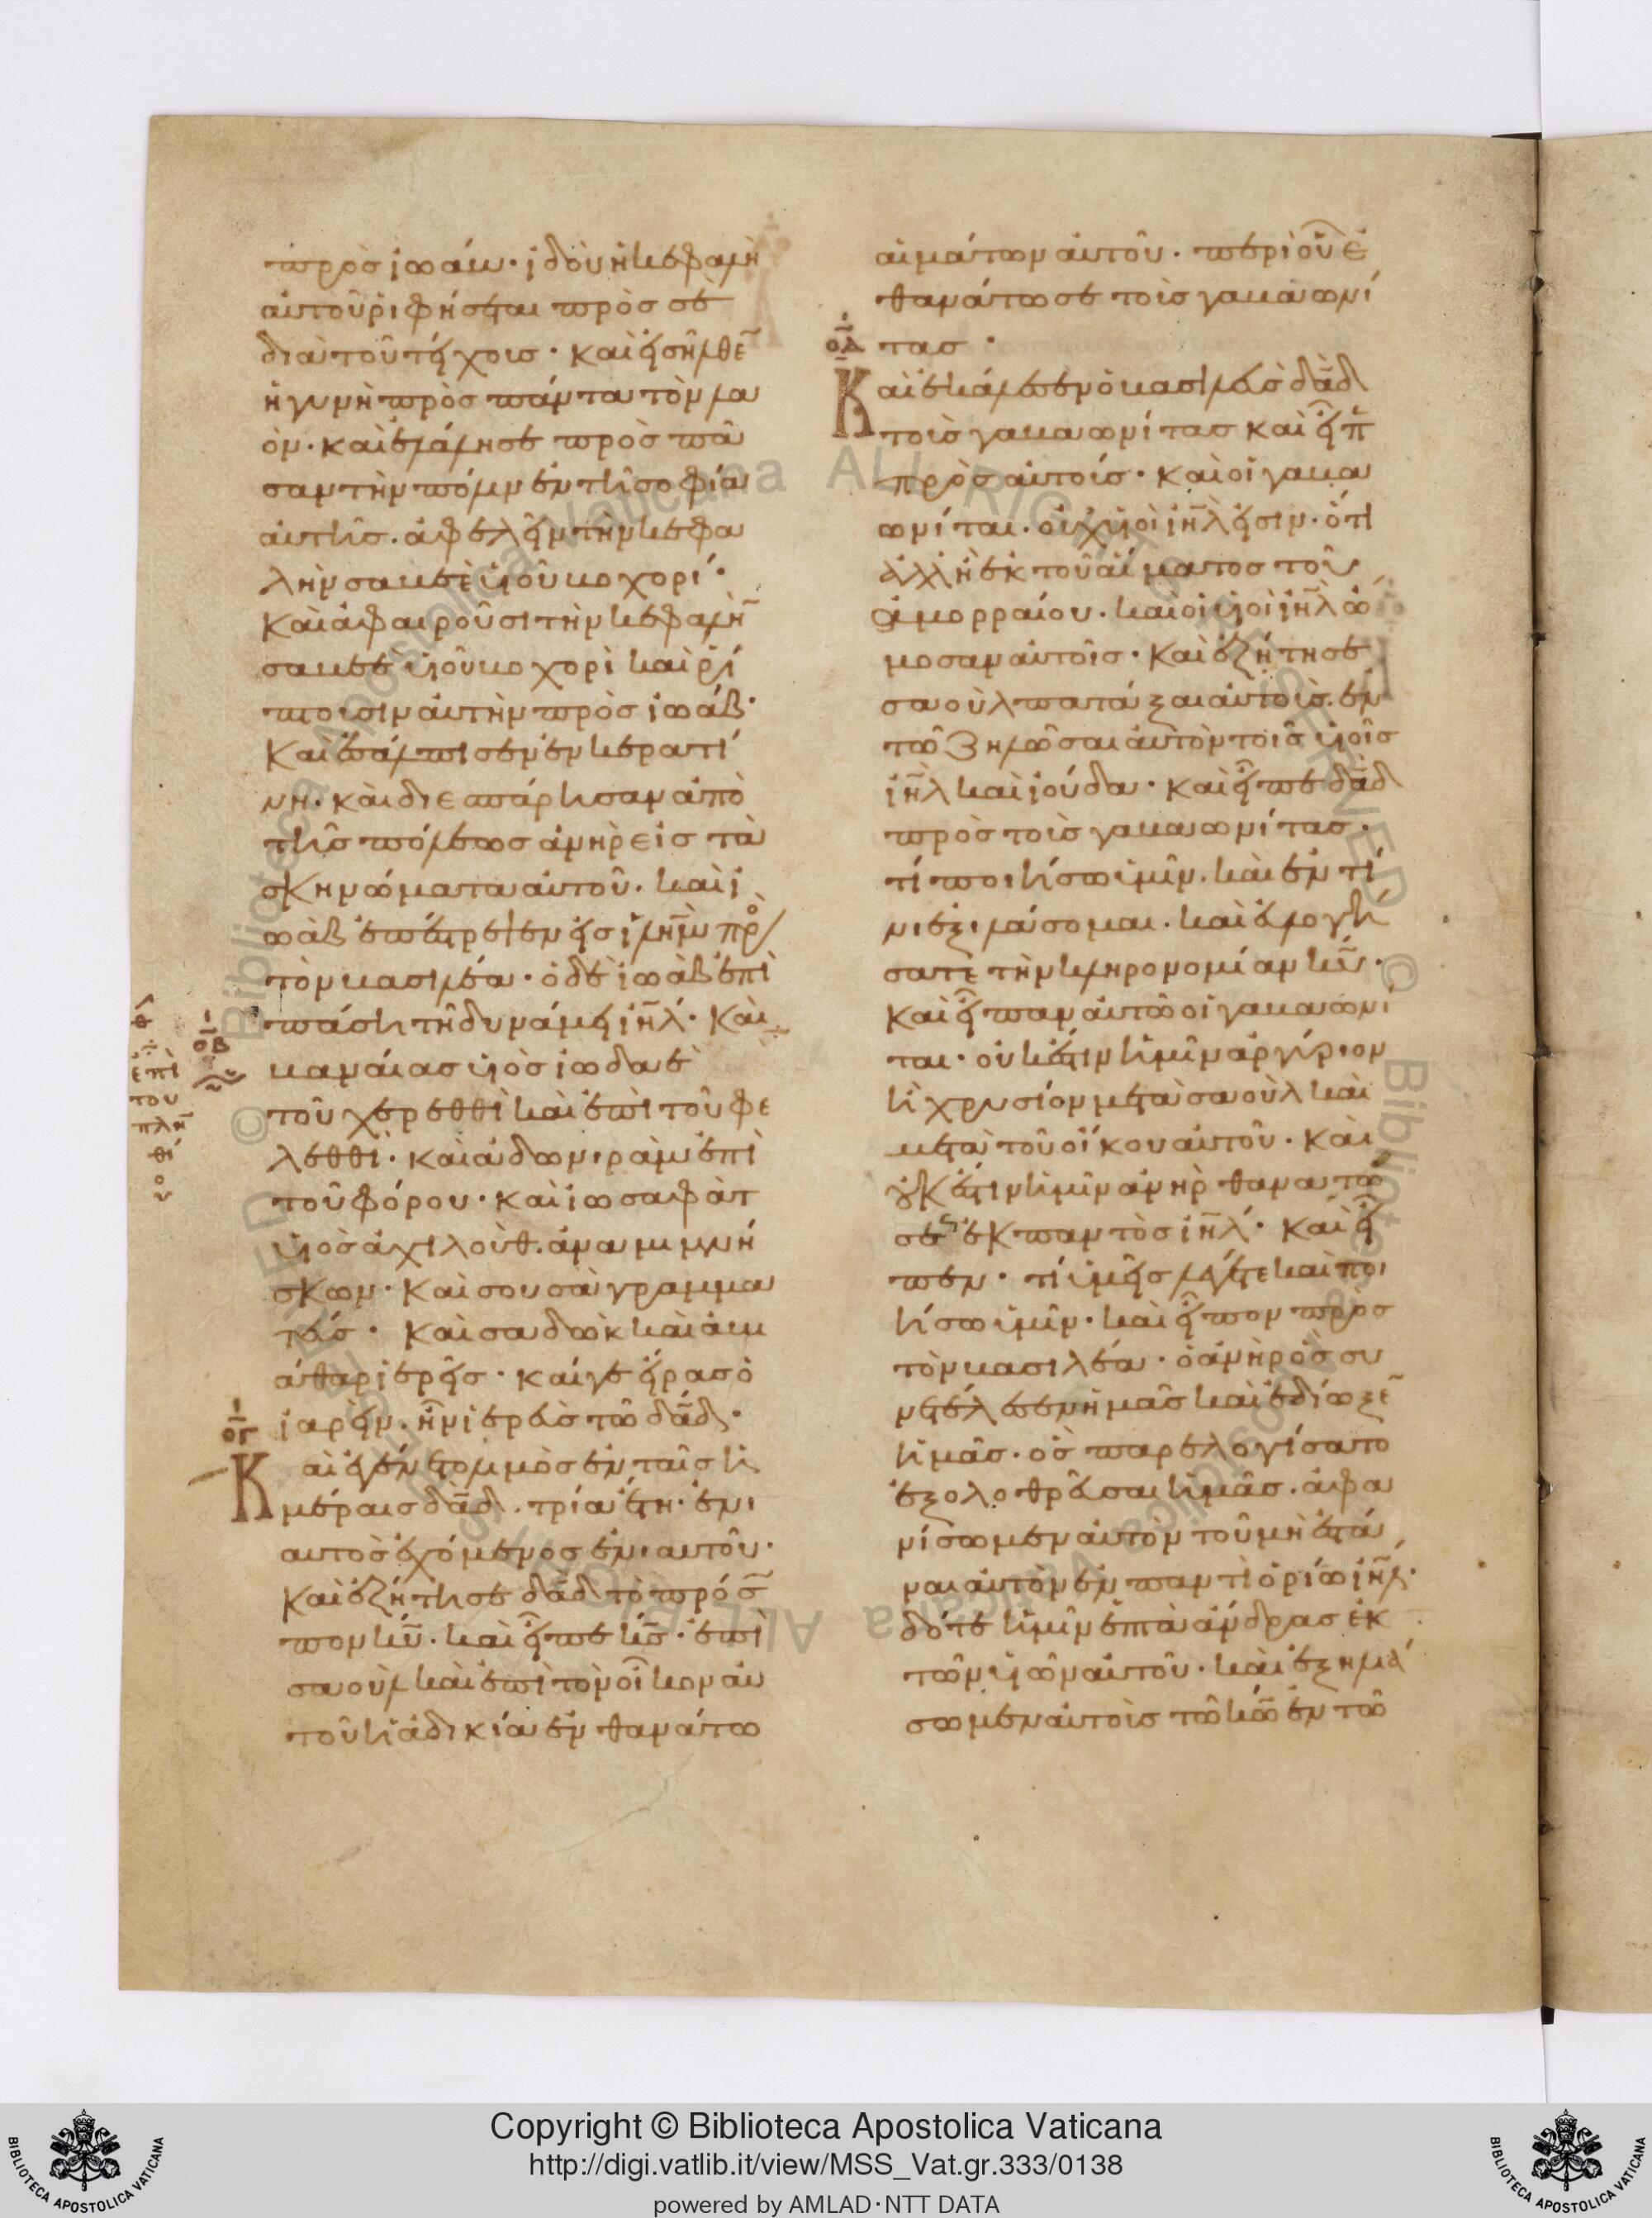 πρὸς ἰωάβ· ἰδοὺ ἡ κεφαλὴ
αὐτοῦ ῥιφήσεται πρὸς σὲ
διὰ τοῦ τείχους· καὶ εἰσῆλθε̄
ἡ γυνὴ πρὸς πάντα τὸν λα
όν· καὶ ἐλάλησε πρὸς πᾶ
σαν τὴν πόλιν ἐν τῆ σοφία
αὐτῆς. ἀφελεῖν τὴν κεφα
λὴν σαβεὲ υἱοῦ βοχορί·
Καὶ ἀφαιροῦσι τὴν κεφαλὴ̄
σαβεὲ υἱοῦ βοχορὶ καὶ ῥί
πτουσιν αὐτὴν πρὸς ἰωάβ·
Καὶ ἐσάλπισεν ἐν κερατί
νη· καὶ διεσπάρησαν ἀπὸ
τῆς πόλεως ἀνὴρ εἰς τὰ
σκηνώματα αὐτοῦ. καὶ ἰ
ωὰβ ἐπέστρεψεν εἰς ἰλη̄μ πρὸ
τὸν βασιλέα· ὁ δὲ ἰωὰβ ἐπὶ
πάση τῆ δυνάμει ιη̄λ· Καὶ
βαναίας υἱὸς ἰωδαὲ
τοῦ χερεθθὶ καὶ ἐπὶ τοῦ φε
λεθθί· καὶ ἀδωνιρὰμ ἐπὶ
τοῦ φόρου· καὶ ἰωσαφὰτ
υἱὸς ἀχιλοὺθ. ἀναμιμνή
σκων· Καὶ σουσὰ γραμμα
τεύς· Καὶ σαδὼκ καὶ ἀβι
άθαρ ἱερεῖς· καίγε εἰρὰς ὁ
ἰαρεὶν. ἦν ἱερεὺς τῶ δᾱδ·
ογ
Καὶ ἐγένετο λιμὸς ἐν ταῖς ἡ
μέραις δᾱδ. τρία ἔτη· ἐνι
αυτὸς ἐχόμενος ἐνιαυτοῦ·
Καὶ ἐζήτησε δᾱδ τὸ πρόσ
ωπον κ̄υ. καὶ εἶπε κ̄ς· ἐπὶ
σαοὺλ καὶ ἐπὶ τὸν οἶκον αὐ
τοῦ ἡ ἀδικία ἐν θανάτω
οβ
ἐπὶ
του
αἱμάτων αὐτοῦ· περὶ οὗ ἐ
θανάτωσε τοὺς γαβαωνί
τας·
οδ
Καὶ ἐκάλεσεν ὁ βασιλεὺς δᾱδ
τοὺς γαβαωνίτας καὶ εἶπ
πρὸς αὐτούς· καὶ οἱ γαβα
ωνίται. οὐχ υἱοὶ ιη̄λ εἰσιν· ὅτι
ἀλλ' ἢ ἐκ τοῦ αἵματος τοῦ
ἀμορραίου. καὶ οἱ υἱοὶ ιη̄λ ὤ
μοσαν αὐτοῖς· Καὶ ἐζήτησε
σαοὺλ πατάξαι αὐτούς. ἐν
τῶ ζηλῶσαι αὐτὸν τοὺς υἱοὺς
ιη̄λ καὶ ἰούδα· καὶ εἶπε δᾱδ
πρὸς τοὺς γαβαωνίτας·
τί ποιήσω ὑμῖν. καὶ ἐν τί
νι ἐξιλάσομαι. καὶ εὐλογή
σατε τὴν κληρονομίαν κ̄υ·
Καὶ εἶπαν αὐτῶ οἱ γαβαωνῖ
ται· οὐκ ἔστιν ἡμῖν ἀργύριον
ἢ χρυσίον μετὰ σαοὺλ καὶ
μετὰ τοῦ οἴκου αὐτοῦ· Καὶ
οὐκ ἔστιν ἡμῖν ἀνὴρ θανατῶ
σαι ἐκ παντὸς ιη̄λ· Καὶ εἶ
πεν· τί ὑμεῖς λέγετε καὶ ποι
ήσω ὑμῖν· καὶ εἶπον πρὸς
τὸν βασιλέα· ὁ ἀνὴρ ὃς συ
νετέλεσεν ἡμᾶς καὶ ἐδίωξε̄
ἡμᾶς. ὃς παρελογίσατο
ἐξολοθρεῦσαι ἡμᾶς. ἀφα
νίσωμεν αὐτὸν τοῦ μὴ ἑστά
ναι αὐτὸν ἐν παντὶ ὁρίω ιη̄λ·
δότε ἡμῖν ἑπτὰ ἄνδρας ἐκ
τῶν υἱῶν αὐτοῦ· καὶ ἐξηλιά
σωμεν αὐτοὺς τῶ κ̄ω ἐν τῶ
Copyright © Biblioteca Apostolica Vaticana
http://digi.vatlib.it/view/MSS_Vat.gr.333/0138
powered by AMLAD·NTT DATA